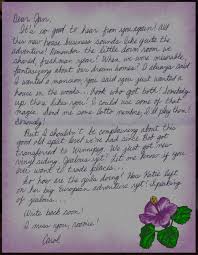 Dear Jan,
It's so good to hear from you again! All
this new house business sounds like quite the
adventure! Remember the little dorm room we
shared, freshman year? When we were miserable
fantasizing about our dream homes? I always said
I wanted a mansion, you said you just wanted a
house in the woods... look who got both! Somebody
up there likes you! I could use some of that
magic. Send me some lotto numbers, I'll play them!
Seriously!
But I shouldn't be complaining about this
good old split level we've had since Bob got
transferred to Winnipeg. We just got new
vinyl siding. Jealous yet? Let me know if you
ever want to trade places...
So how are the girls doing? Has Katie left
on her big European adventure yet? Speaking
of jealous...
Write back soon!
I miss you, roomie!
Carol